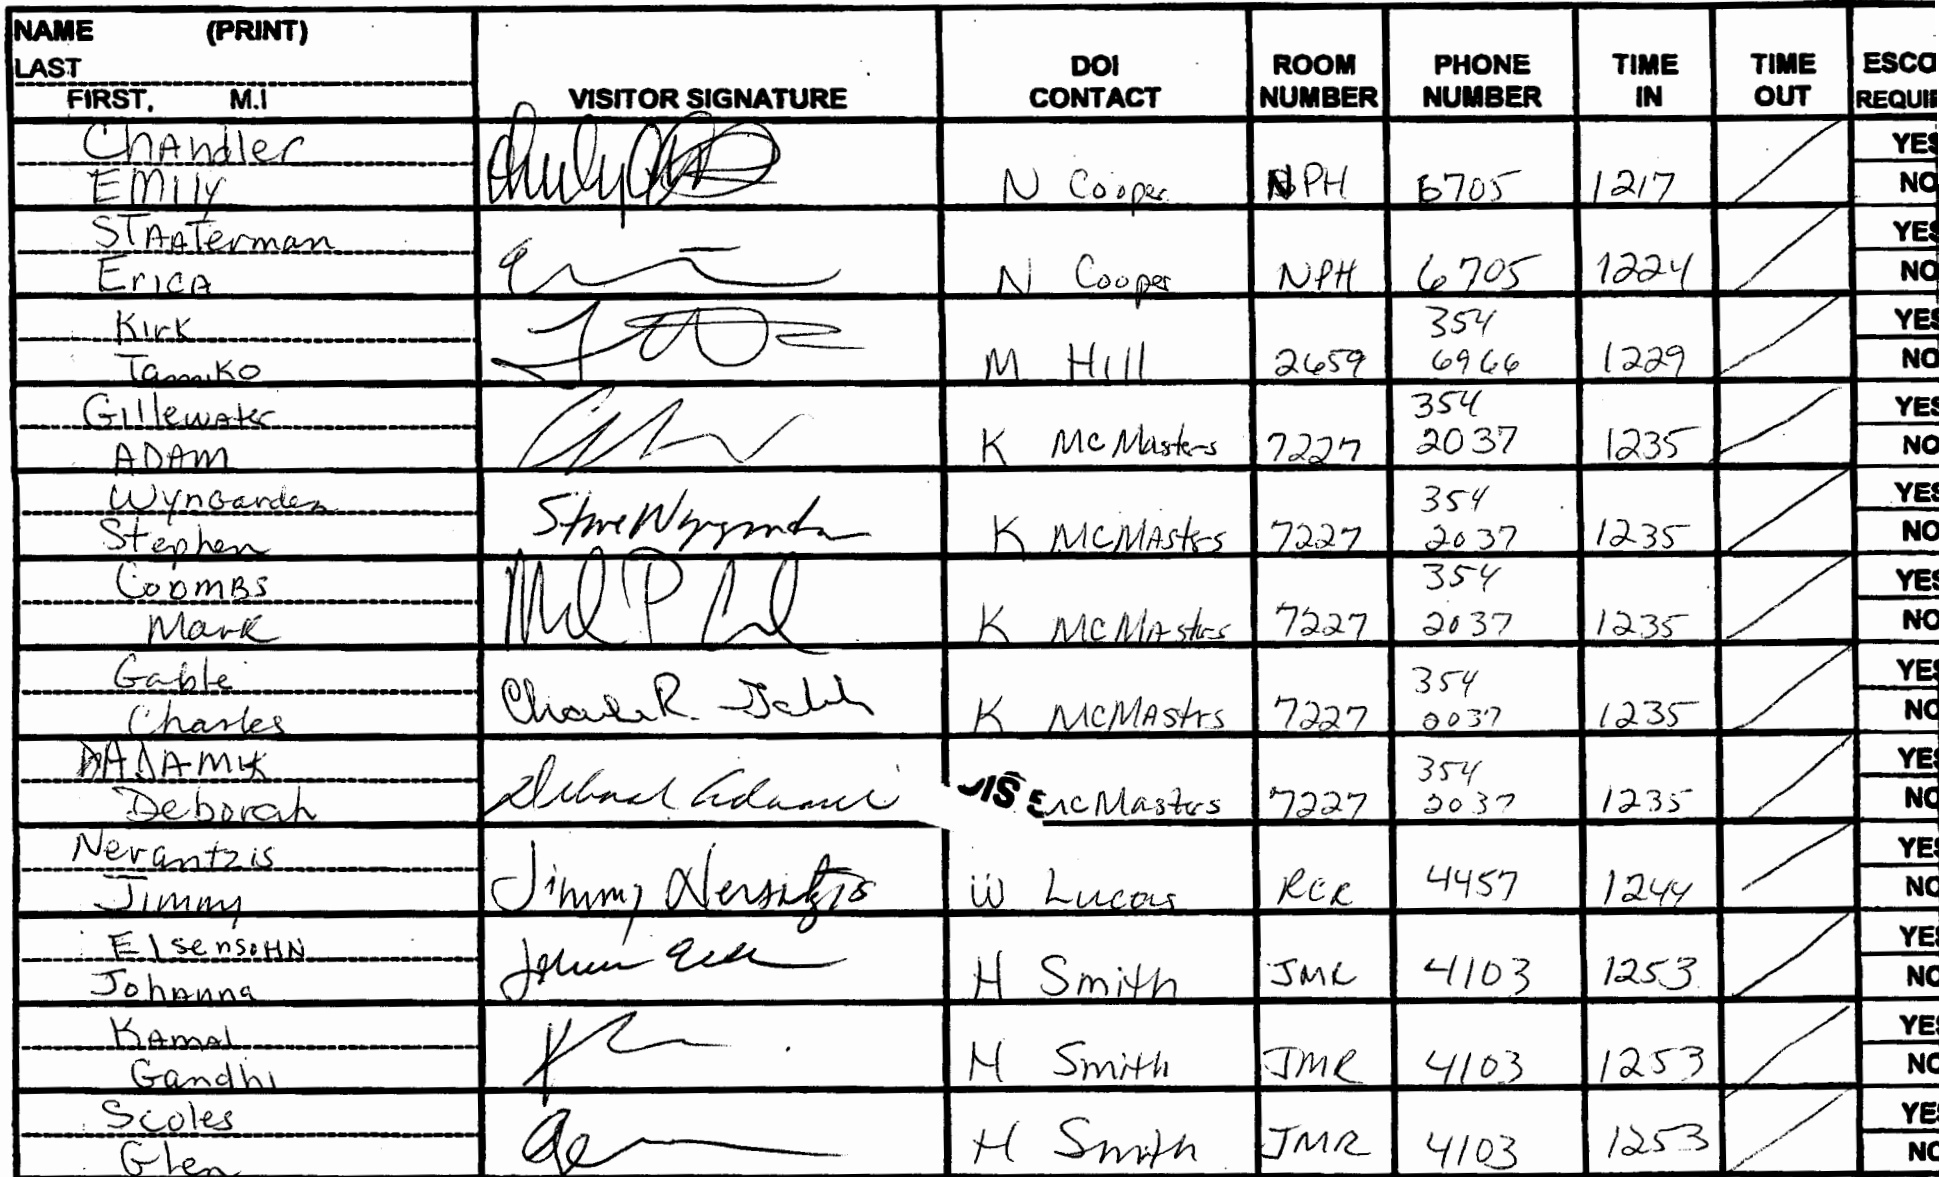 NAME (PRINT)
LAST
FIRST, M.I
VISITOR SIGNATURE
DOI CONTACT
ROOM NUMBER
PHONE NUMBER
TIME IN
TIME OUT
ESCO
REQUIR
Chandler
EMILY N Cooper NPH 6705 1217
YES
NO
STAATerman
EricA N Cooper NPH 6705 1224
YES
NO
Kirk 354
Tamiko M Hill 2659 6966 1229
YES
NO
Gillewater 354
ADAM K McMasters 7227 2037 1235
YES
NO
Wyngarden 354
Stephen Steve Wyngarden K McMasters 7227 2037 1235
YES
NO
Coombs 354
Mark K McMasters 7227 2037 1235
YES
NO
Gable 354
Charles Charles R. Gable K McMastrs 7227 0037 1235
YES
NO
354
Deborah McMasters 7227 2037 1235
YES
NO
Nerantzis
Jimmy Jimmy W Lucas RCR 4457 1244
YES
NO
ElsensoHN
Johanna H Smith JMR 4103 1253
YES
NO
Kamal
Gandhi H Smith JMR 4103 1253
YES
NO
Scoles
Glen H Smith JMR 4103 1253
YES
NO